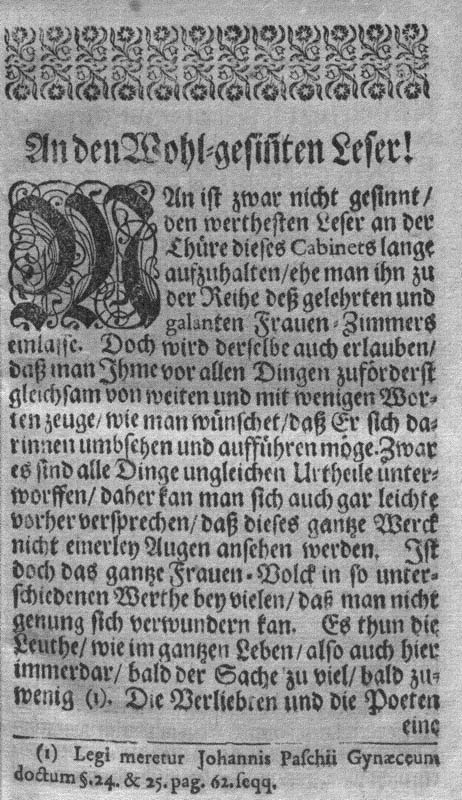 An den Wohl-gesiñten Leser!
MAn ist zwar nicht gesinnt/
den werthesten Leser an der
Thüre dieses Cabinets lange
aufzuhalten/ ehe man ihn zu
der Reihe deß gelehrten und
galanten Frauen-Zimmers
einlasse. Doch wird derselbe auch erlauben/
daß man Ihme vor allen Dingen zuförderst
gleichsam von weiten und mit wenigen Wor-
ten zeuge/ wie man wünschet/ daß Er sich da-
rinnen umbsehen und aufführen möge. Zwar
es sind alle Dinge ungleichen Urtheile unter-
worffen/ daher kan man sich auch gar leichte
vorher versprechen/ daß dieses gantze Werck
nicht einerley Augen ansehen werden. Ist
doch das gantze Frauen-Volck in so unter-
schiedenen Werthe bey vielen/ daß man nicht
genung sich verwundern kan. Es thun die
Leuthe/ wie im gantzen Leben/ also auch hier
immerdar/ bald der Sache zu viel/ bald zu-
wenig (1). Die Verliebten und die Poeten
eine
(1) Legi meretur Johannis Paschii Gynæceum
doctum §. 24. & 25. pag. 62. seqq.